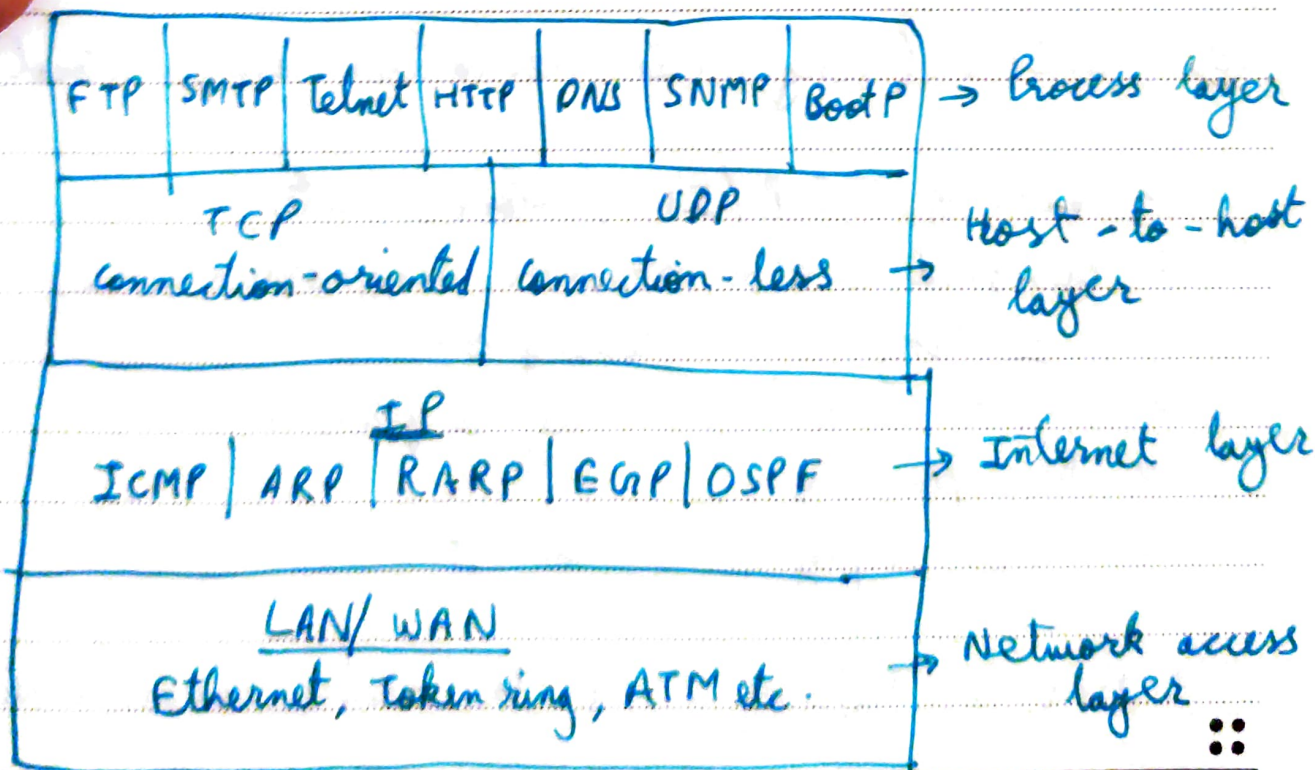 FTP | SMTP | Telnet | HTTP | DNS | SNMP | BootP → Process layer
TCP
connection-oriented
UDP
connection-less
→ Host-to-host
layer
IP
ICMP | ARP | RARP | EGP | OSPF → Internet layer
LAN/WAN
Ethernet, Token ring, ATM etc.
→ Network access
layer